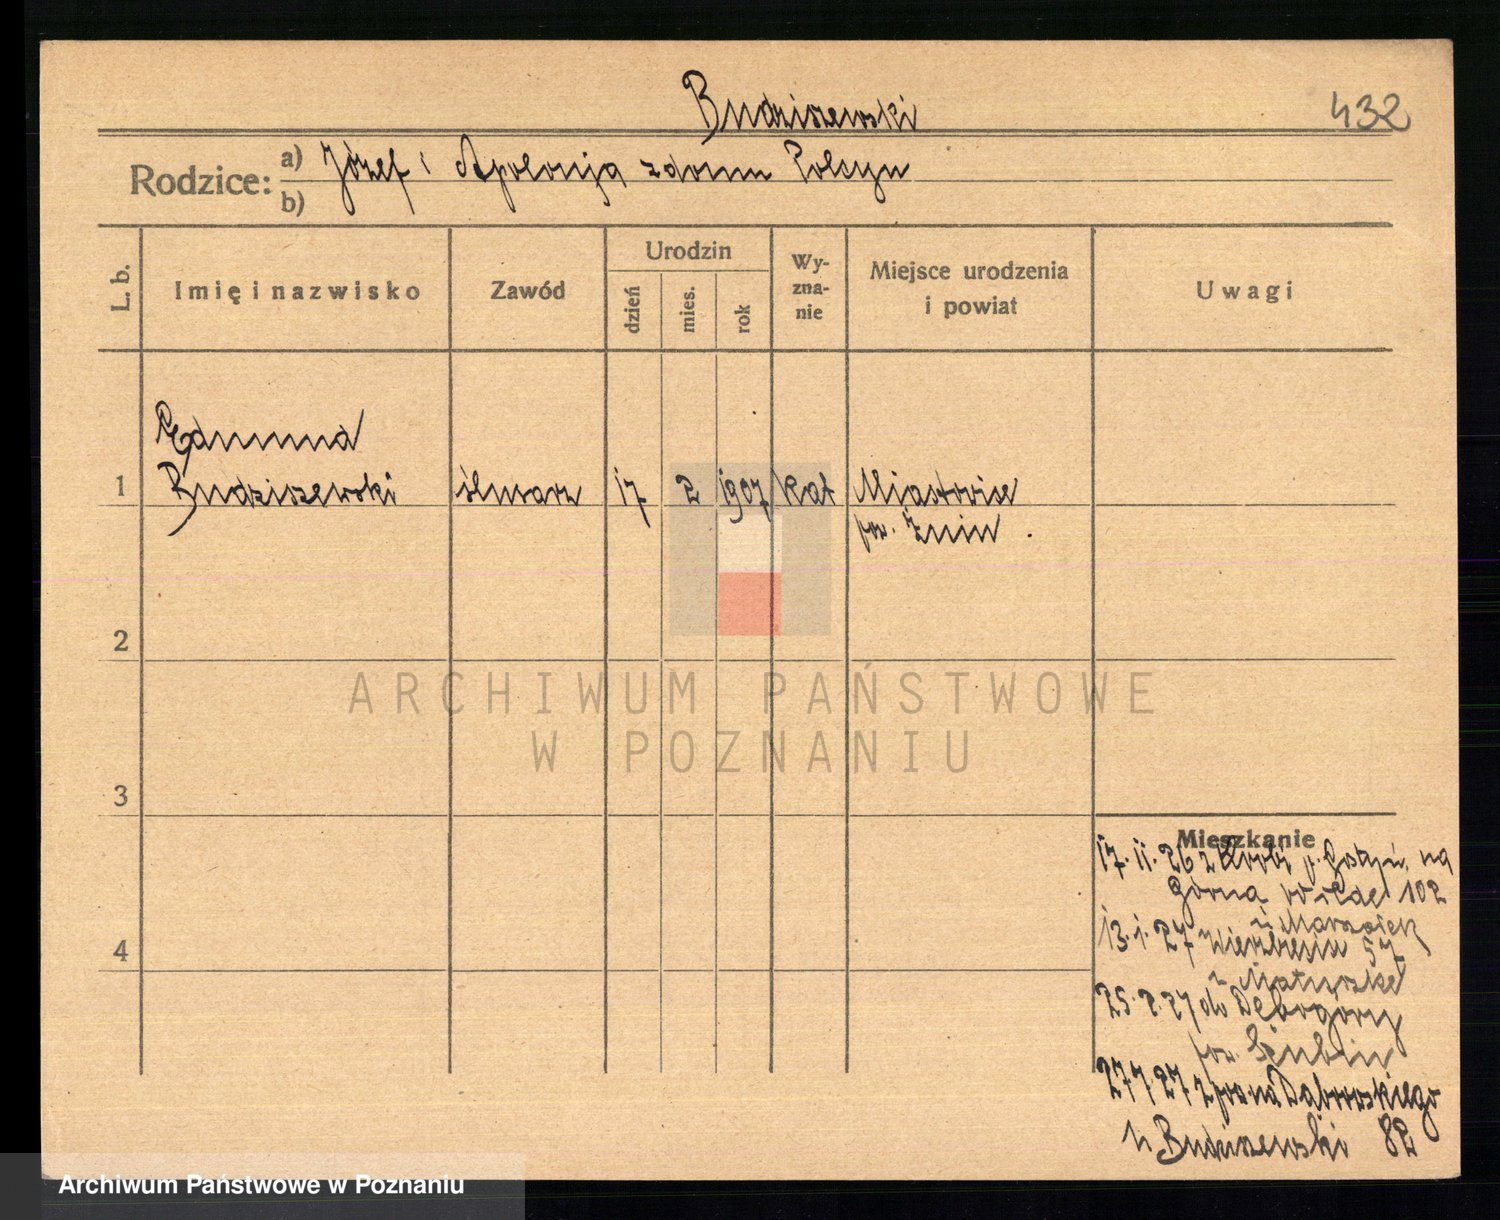 Budziszewski
432
Rodzice: a) Józef i Apolonja z domu Polcyn
b)
L. b.
Imię i nazwisko
Zawód
Urodzin
dzień
mies.
rok
Wy-
zna-
nie
Miejsce urodzenia
i powiat
Uwagi
Edmund
1 Budziszewski ślusarz 17 2 1907 kat Miastowice
pow. Żnin
2
ARCHIWUM PAŃSTWOWE
W POZNANIU
3
Mieszkanie
17.11.26 z Krobi p. Gostyń na
Górną 102
4
13.1.27 Wierzbięcin 57
25.2.27 do Dębogóry
pow. Szubin
27.7.27 z pow na Dąbrowskiego
u Budziszewski 82
Archiwum Państwowe w Poznaniu